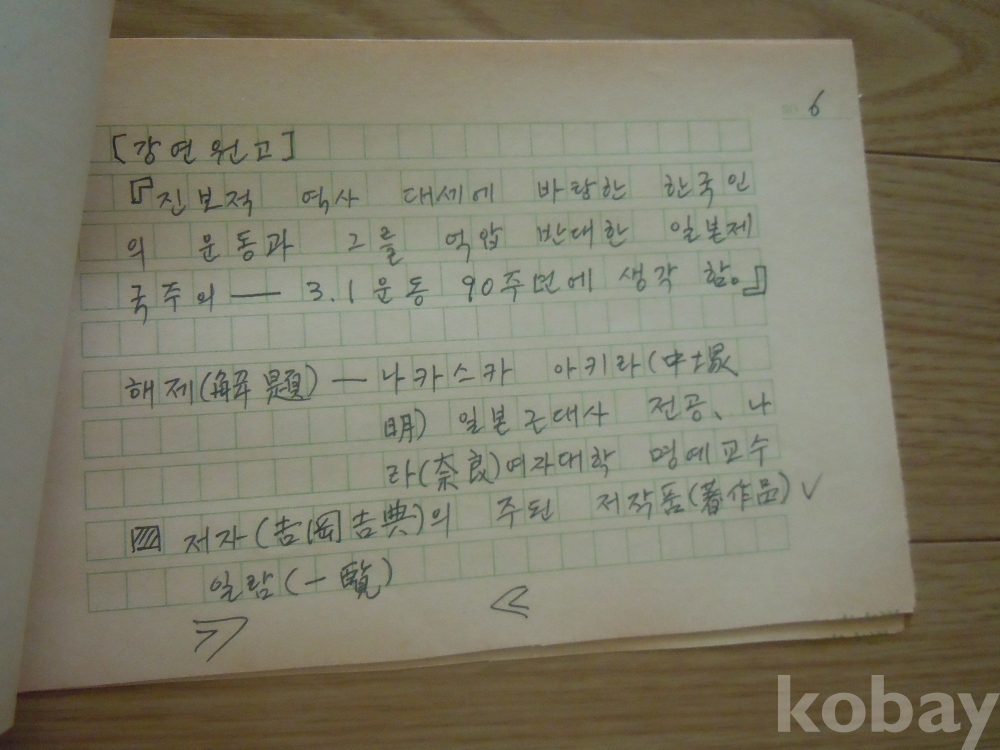 6
[강연원고]
『진보적 역사 대세에 바탕한 한국인
의 운동과 그를 억압 반대한 일본제
국주의 — 3.1운동 90주년에 생각 함.』
해제(解題) — 나카스카 아키라(中塚
明) 일본근대사 전공、나
라(奈良)여자대학 명예교수
저자(吉岡吉典)의 주된 저작품(著作品)
일람(一覽)
kobay